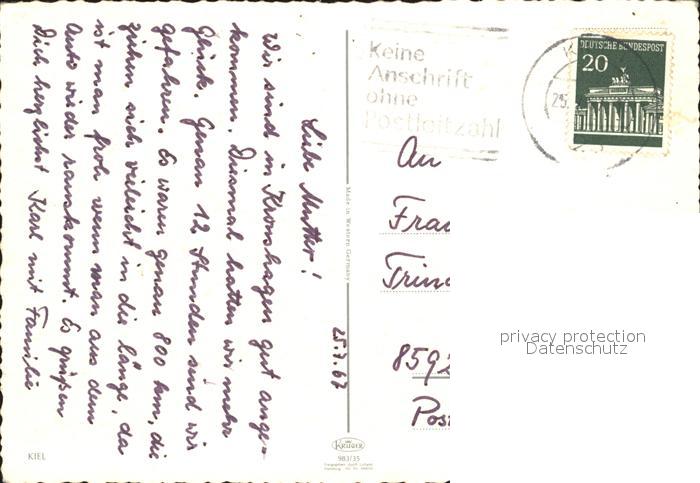 Liebe Mutter!
Wir sind in Kronshagen gut ange-
kommen. Diesmal hatten wir mehr
Glück. Genau 12 Stunden sind wir
gefahren. Es waren genau 800 km, die
ziehen sich vieleicht in die länge, da
ist man froh wenn man aus dem
Auto wieder rauskommt. Es grüßen
Dich herzlichst Karl mit Familie
25.7.67
KIEL
Made in Western Germany
KRÜGER
983/35
Keine
Anschrift
ohne
Postleitzahl
DEUTSCHE BUNDESPOST
20
An
Frau
859
privacy protection
Datenschutz